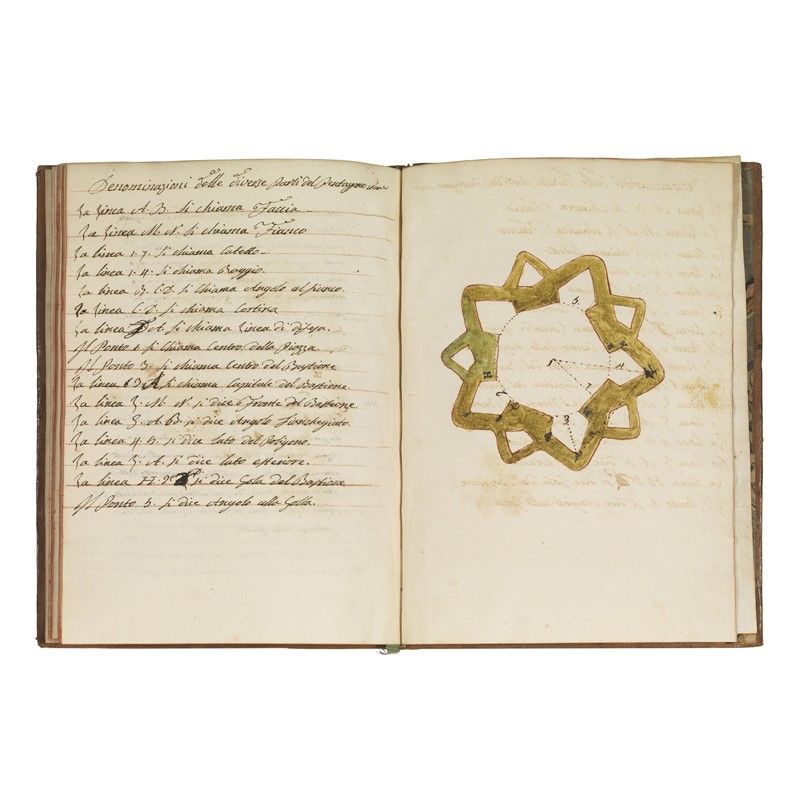 Denominazioni delle diverse Parti del Pentagono
La Linea A. B. si chiama Faccia
La Linea M. N. si chiama Fianco
La linea 1. 7. si chiama Catetto.
La linea 1. 4. si chiama Raggio.
La linea B. C. D. si chiama Angolo al fianco
La linea C. D. si chiama Cortina
La linea A. si chiama Linea di difesa.
Il Ponto 1. si chiama Centro della Piazza
Il Ponto 3. si chiama Centro del Bastione
La linea si chiama Capitale del Bastione.
La linea M. N. si dice Fronte del Bastione
La linea A. B. si dice Angolo
La linea 4. 5. si dice lato del Poligono.
La linea A. si dice lato esteriore.
La linea si dice Gola del Bastione
Il Ponto 5. si dice Angolo alla Golla.
5.
4
1
7
8
B